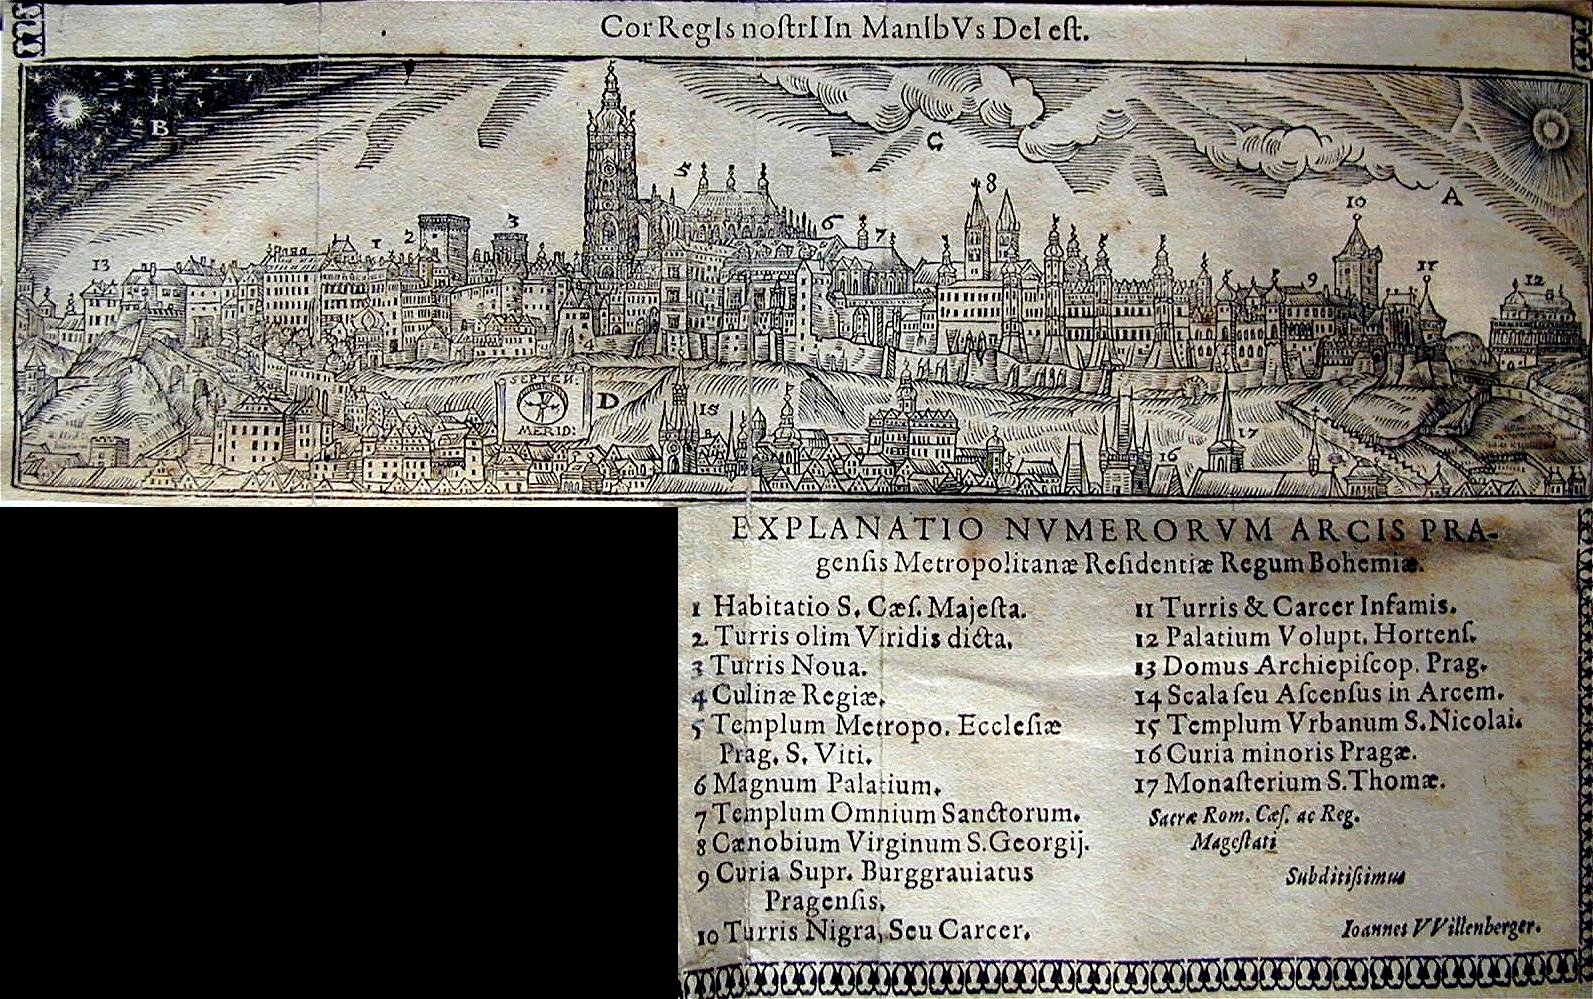 Cor RegIs noſtrI In ManIbVs DeI eſt.
B
C
A
5
8
10
3
2
1
6
7
13
9
11
12
SEPTEN:
D
MERID:
15
17
16
EXPLANATIO NVMERORVM ARCIS PRA-
genſis Metropolitanæ Reſidentiæ Regum Bohemiæ.
1 Habitatio S. Cæſ. Majeſta.
2 Turris olim Viridis dicta.
3 Turris Noua.
4 Culinæ Regiæ.
5 Templum Metropo. Eccleſiæ
Prag. S. Viti.
6 Magnum Palatium.
7 Templum Omnium Sanctorum.
8 Cænobium Virginum S. Georgij.
9 Curia Supr. Burggrauiatus
Pragenſis.
10 Turris Nigra, Seu Carcer.
11 Turris & Carcer Infamis.
12 Palatium Volupt. Hortenſ.
13 Domus Archiepiſcop. Prag.
14 Scala ſeu Aſcenſus in Arcem.
15 Templum Vrbanum S. Nicolai.
16 Curia minoris Pragæ.
17 Monaſterium S. Thomæ.
Sacræ Rom. Cæſ. ac Reg.
Mageſtati
Subditiſsimus
Ioannes VVillenberger.